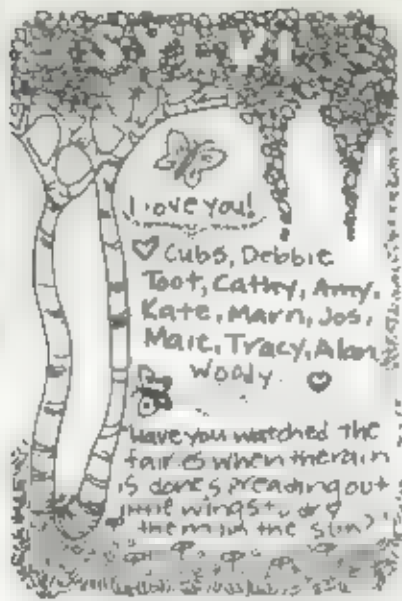 I love you!
♡ Cubs, Debbie
Toot, Cathy, Amy,
Kate, Marn, Jos,
Marc, Tracy, Alan
Woody ♡
Have you watched the
fairies when the rain
is done spreading out
little wings to dry
them in the sun?